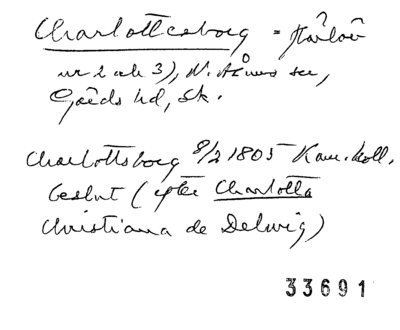 Charlottesborg = Kårlöv
nr 2 och 3), N. Åkarps sn,
Göinge hd, Sk.
Charlottsborg 8/2 1805 Kam.koll.
beslut (efter Charlotta
Christiana de Delwig)
33691